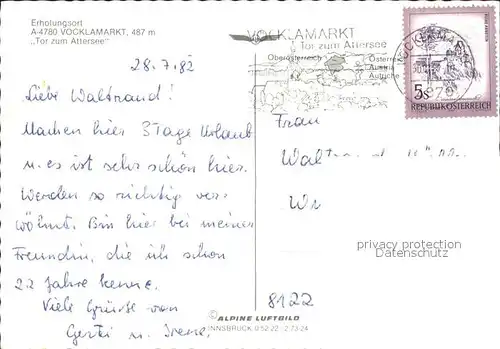 Erholungsort
A-4780 VOCKLAMARKT, 487 m
„Tor zum Attersee"
28.7.82
Liebe Waltraud!
Machen hier 3 Tage Urlaub
u. es ist sehr schön hier.
Werden so richtig ver-
wöhnt. Bin hier bei meiner
Freundin, die ich schon
22 Jahre kenne.
Viele Grüsse von
Gerti u. Irene.
VOCKLAMARKT
Tor zum Attersee
Oberösterreich
Österreich
Austria
Autriche
5s
REPUBLIK ÖSTERREICH
Frau
privacy protection
Datenschutz
8122
© ALPINE LUFTBILD
INNSBRUCK, 0 52 22 - 2 73-24